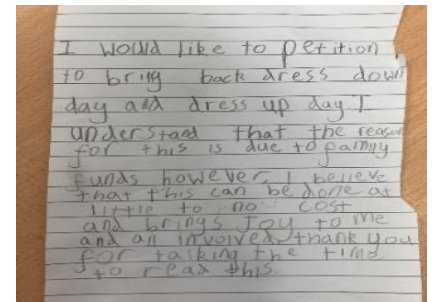 I would like to petition
to bring back dress down
day and dress up day I
understand that the reason
for this is due to family
funds however I believe
that this can be done at
little to no cost
and brings Joy to me
and all involved thank you
for talking the time
to read this.